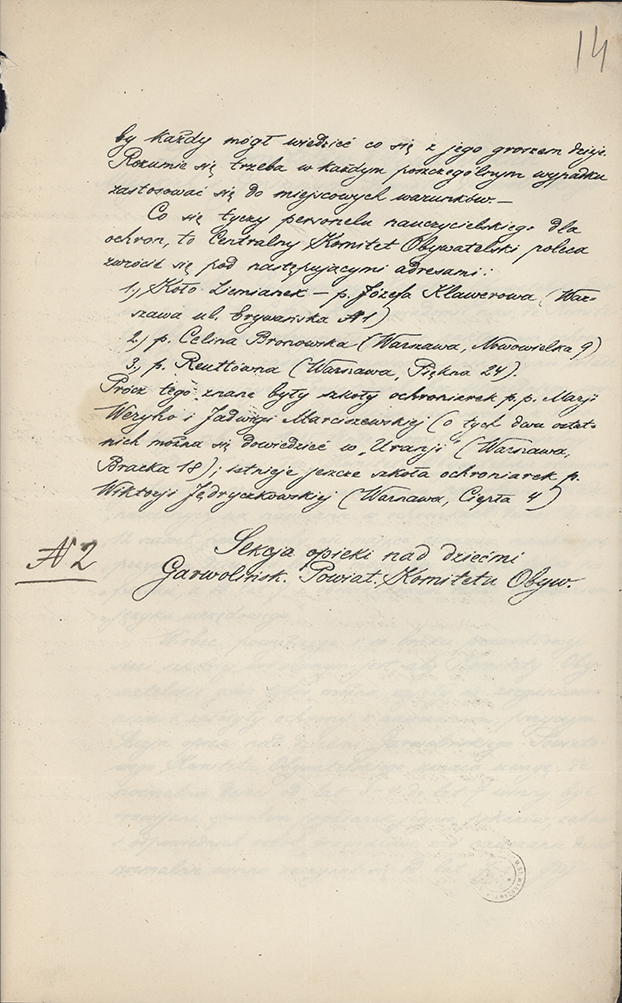 14
by każdy mógł wiedzieć co się z jego groszem dzieje.
Rozumie się trzeba w każdym poszczególnym wypadku
zastosować się do miejscowych warunków.—
Co się tyczy personelu nauczycielskiego dla
ochron, to Centralny Komitet Obywatelski poleca
zwrócić się pod następującymi adresami:
1) Koło Ziemianek — p. Józefa Klawerowa (War-
szawa ul. Erywańska № 1)
2) p. Celina Bronowska (Warszawa, Nowowielka 9)
3) p. Reuttówna (Warszawa, Piękna 24).
Prócz tego znane były szkoły ochroniarek p.p. Marji
Weryho i Jadwigi Marciszewskiej (o tych dwu ostat-
nich można się dowiedzieć w „Uranji" (Warszawa,
Bracka 18); istnieje jeszcze szkoła ochroniarek p.
Wiktorji Jędryczkowskiej (Warszawa, Ciepła 4)
№ 2
Sekcja opieki nad dziećmi
Garwolińsk. Powiat. Komitetu Obyw.